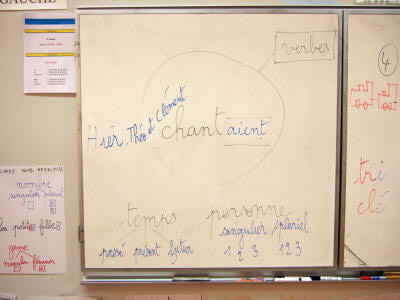 GAUCHE
verbes
4
Hier, Théo et Clément chantaient
tri
clé
nombre
singulier pluriel
les petites filles
genre
masculin féminin
temps personne
singulier pluriel
passé présent futur 1 2 3 1 2 3